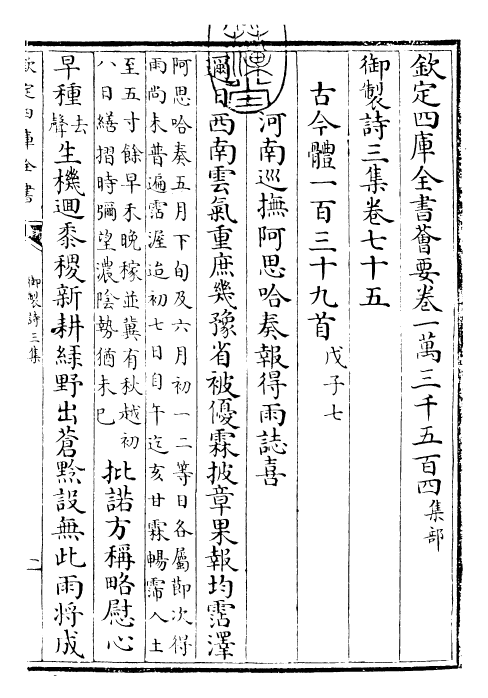 欽定四庫全書薈要卷一萬三千五百四集部
御製詩三集卷七十五
古今體一百三十九首戊子七
河南巡撫阿思哈奏報得雨誌喜
邇日西南雲氣重庶幾豫省被優霖披章果報均霑澤
阿思哈奏五月下旬及六月初一二等日各屬節次得
雨尚未普遍霑渥迨初七日自午迄亥甘霖暢霈入土
至五寸餘早禾晚稼並冀有秋越初
八日繕摺時彌望濃陰勢猶未已
批諾方稱略慰心
早種去聲生機迴黍稷新耕綠野出蒼黔設無此雨将成
欽定四庫全書
御製詩三集
一